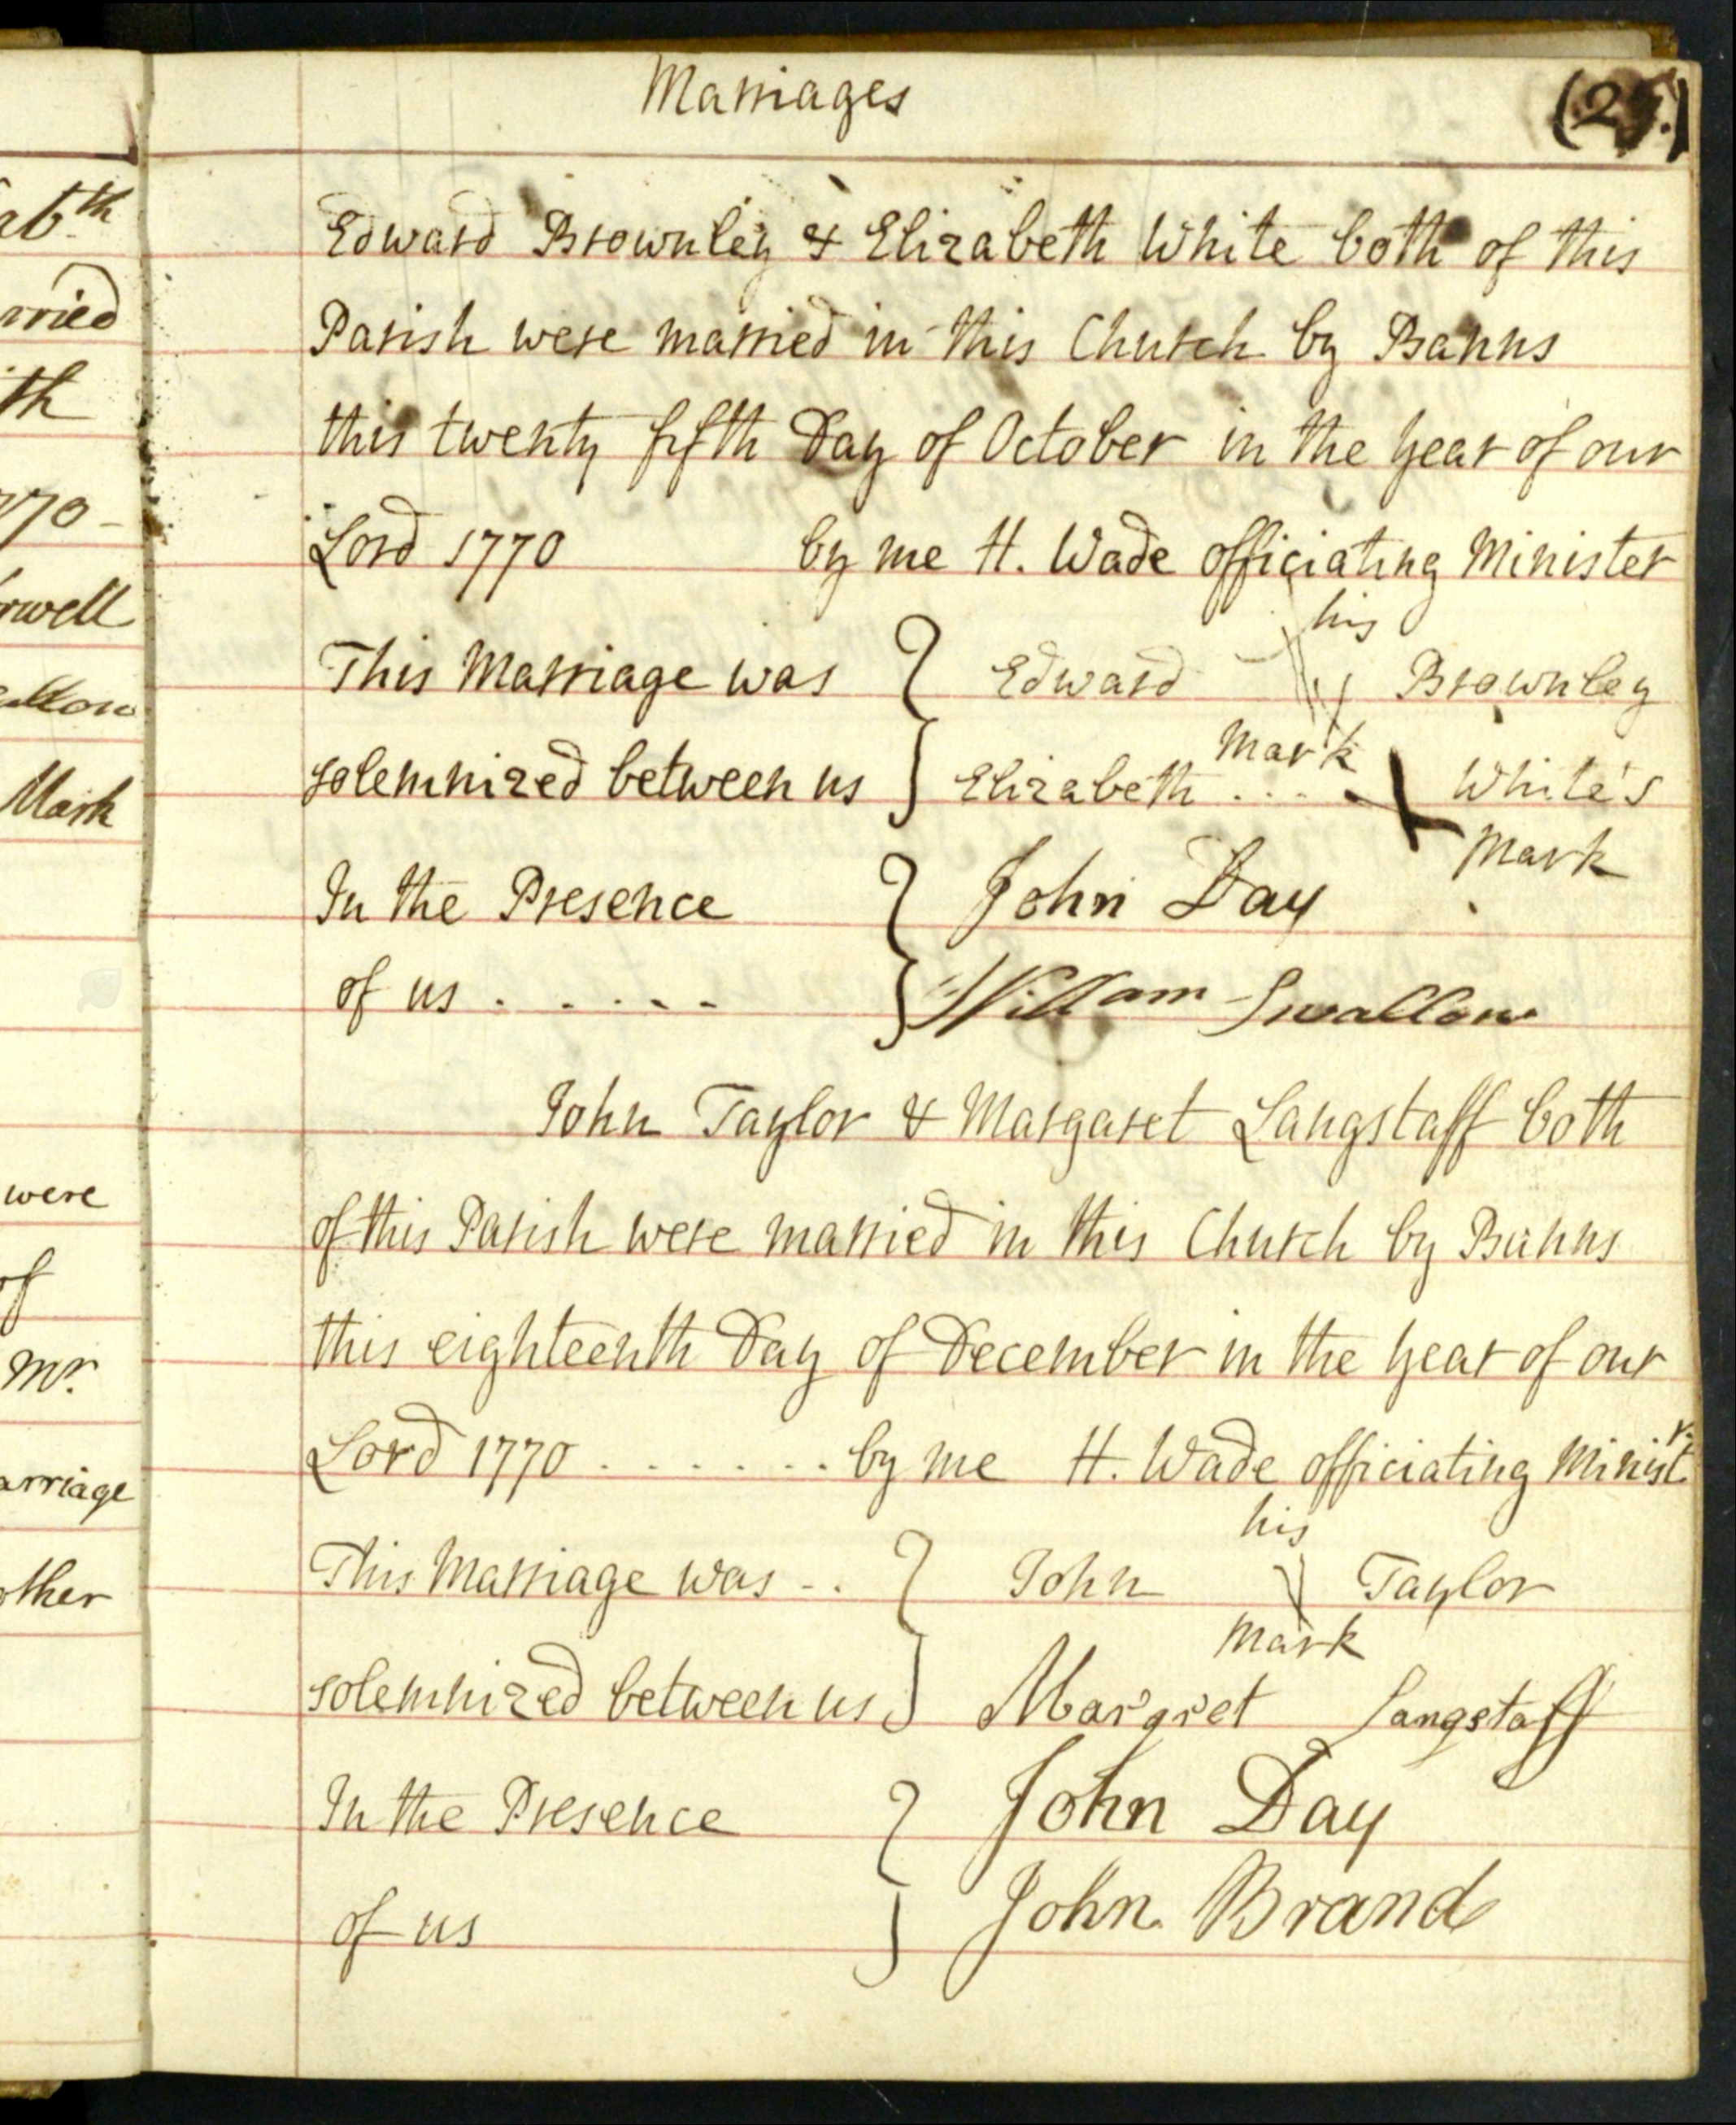 6th
rried
th
770-
rwell
allow
Mark
were
of
Mr.
arriage
other
Marriages
Edward Brownley & Elizabeth White both of this
Parish were married in this Church by Banns
this twenty fifth Day of October in the year of our
Lord 1770 by me H. Wade officiating Minister
his
This Marriage was Edward Brownley
Mark
solemnized between us Elizabeth .... X White's
Mark
In the Presence John Day
of us . . . . . William Swallow
John Taylor & Margaret Langstaff both
of this Parish were married in this Church by Banns
this eighteenth Day of December in the year of our
Lord 1770 . . . . . . . by me H. Wade officiating Ministr.
his
This Marriage was - . John Taylor
Mark
solemnized between us Margret Langstaff
In the Presence John Day
of us John Brand